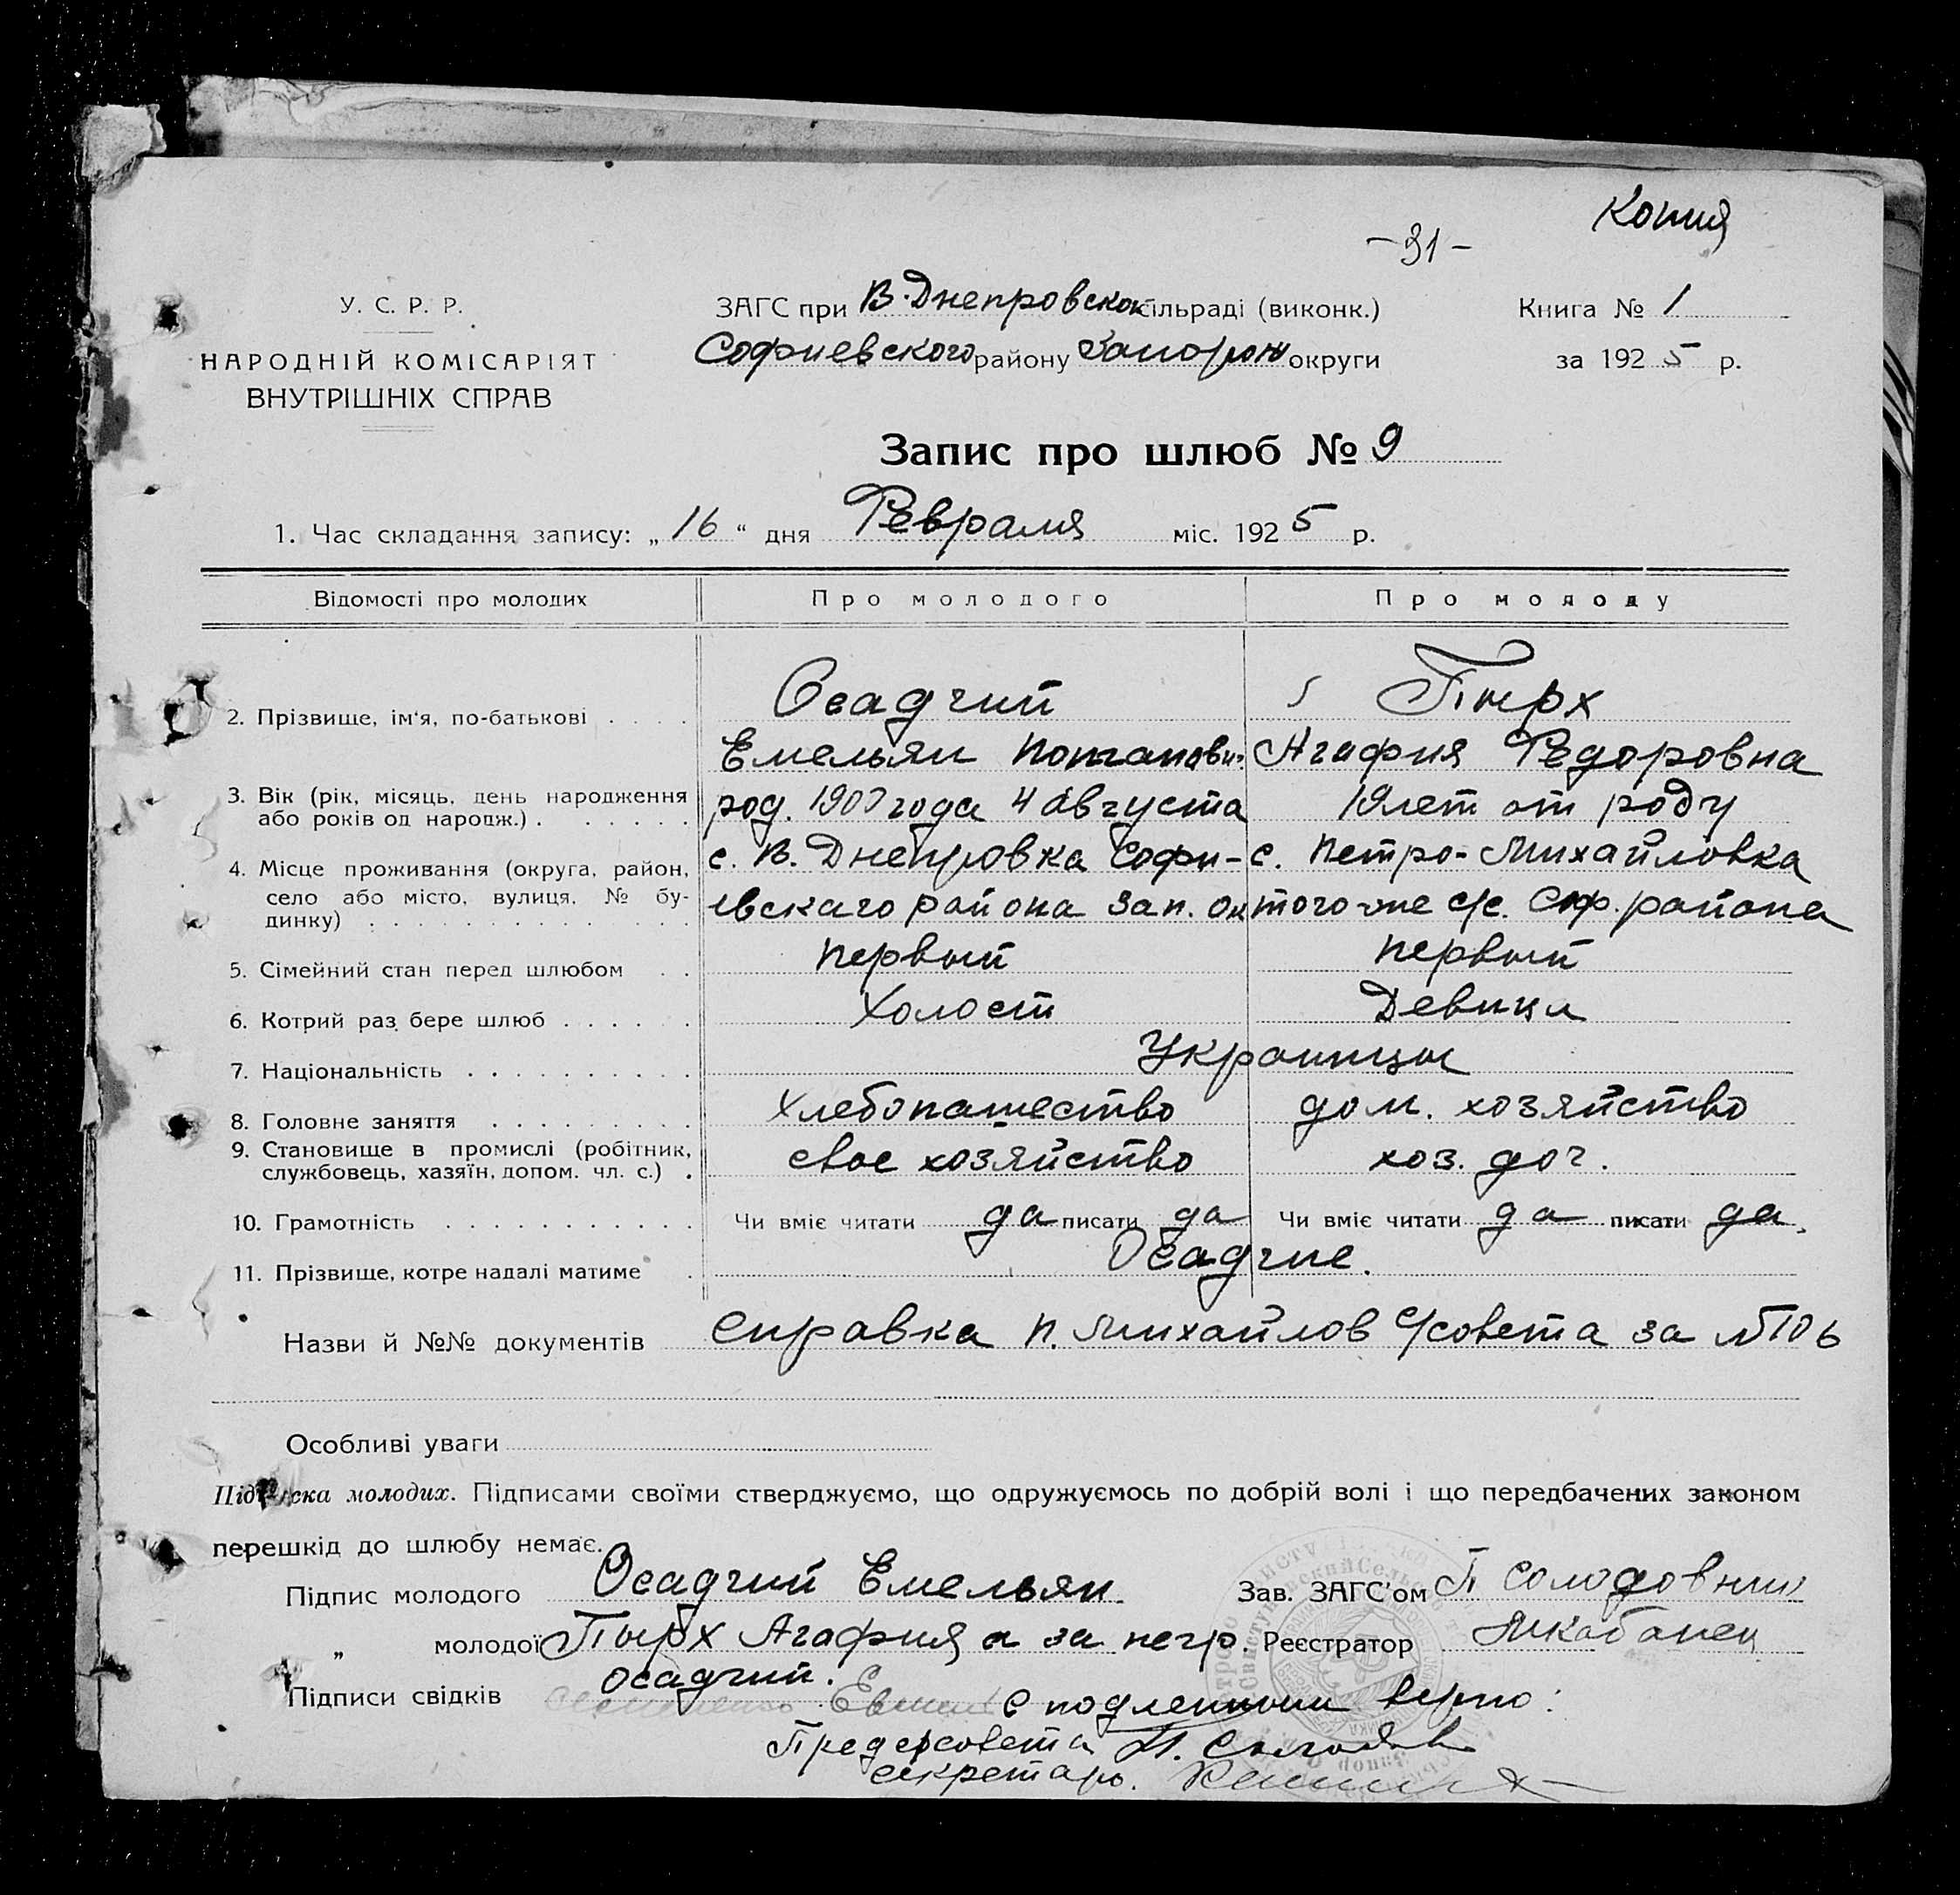 Копия
-31-
У. С. Р. Р.
НАРОДНІЙ КОМІСАРІЯТ
ВНУТРІШНІХ СПРАВ
ЗАГС при В-Днепровской сільраді (виконк.)
Софиевского району Запорож округи
Книга № 1
за 1925 р.
Запис про шлюб № 9
1. Час складання запису: „16“ дня Февраля міс. 1925 р.
Відомості про молодих Про молодого Про молоду
2. Прізвище, ім'я, по-батькові Осадчий Пырх
Емельян Потапови- Агафия Федоровна
3. Вік (рік, місяць, день народження або років од народж.) род. 1907 года 4 августа 19 лет от роду
4. Місце проживання (округа, район, село або місто, вулиця, № будинку) с. В. Днепровка Софи- с. Петро-Михайловка
евскаго района Зап. ок того-же с/с. Соф. района
5. Сімейний стан перед шлюбом первый первый
6. Котрий раз бере шлюб Холост Девица
7. Національність Украинцы
8. Головне заняття Хлебопашество дом. хозяйство
9. Становище в промислі (робітник, службовець, хазяїн, допом. чл. с.) свое хозяйство хоз. доч.
10. Грамотність Чи вміє читати да писати да Чи вміє читати да писати да.
11. Прізвище, котре надалі матиме Осадчие.
Назви й №№ документів справка П. Михайлов С/совета за №
Особливі уваги
Підписка молодих. Підписами своїми стверджуємо, що одружуємось по добрій волі і що передбачених законом
перешкід до шлюбу немає.
Підпис молодого Осадчий Емельян. Зав. ЗАГС'ом П Солодовник
„ молодої Пырх Агафия а за негр. Реєстратор
Осадчий.
Підписи свідків С подленным верно:
Пред с/совета
Секретарь.